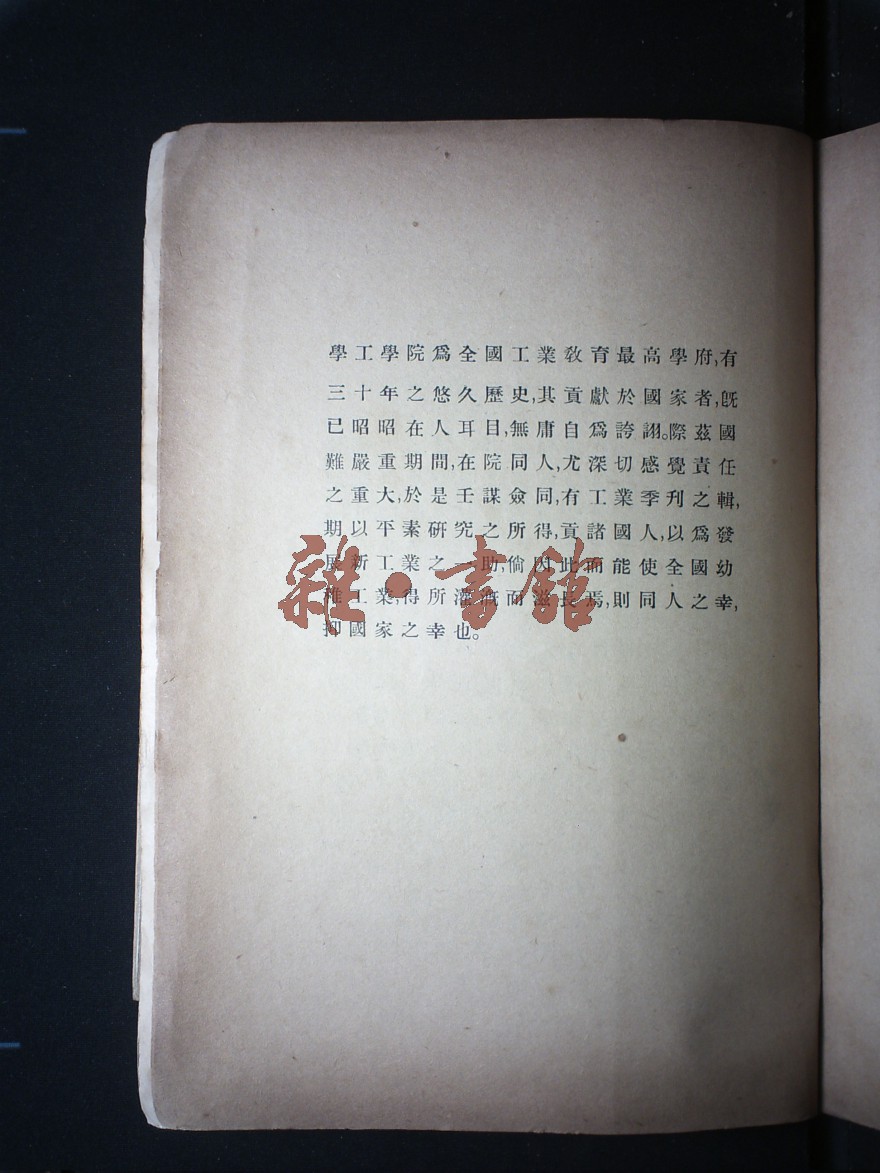 學工學院爲全國工業教育最高學府,有
三十年之悠久歷史,其貢獻於國家者,旣
已昭昭在人耳目,無庸自爲誇詡。際茲國
難嚴重期間,在院同人,尤深切感覺責任
之重大,於是壬謀僉同,有工業季刊之輯,
期以平素硏究之所得,貢諸國人,以爲發
展新工業之一助,倘因此而能使全國幼
稚工業,得所灌漑而滋長焉,則同人之幸,
抑國家之幸也。
雜·書館